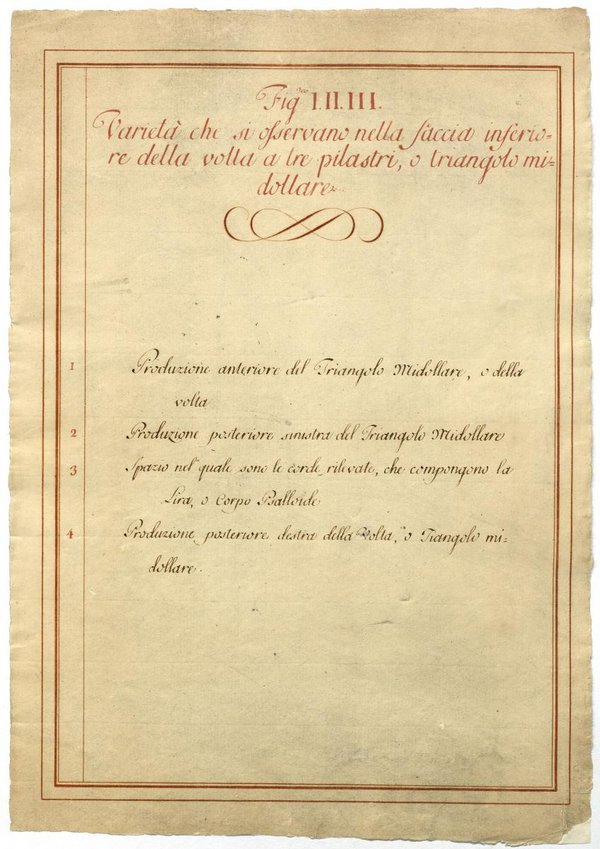 Fig.re I. II. III.
Varietà che si osservano nella faccia inferio=
re della volta a tre pilastri, o triangolo mi=
dollare.
1 Produzione anteriore del Triangolo Midollare, o della
volta
2 Produzione posteriore sinistra del Triangolo Midollare
3 Spazio nel quale sono le corde rilevate, che compongono la
Lira, o Corpo Psalloide
4 Produzione posteriore destra della Volta, o Tiangolo mi=
dollare.